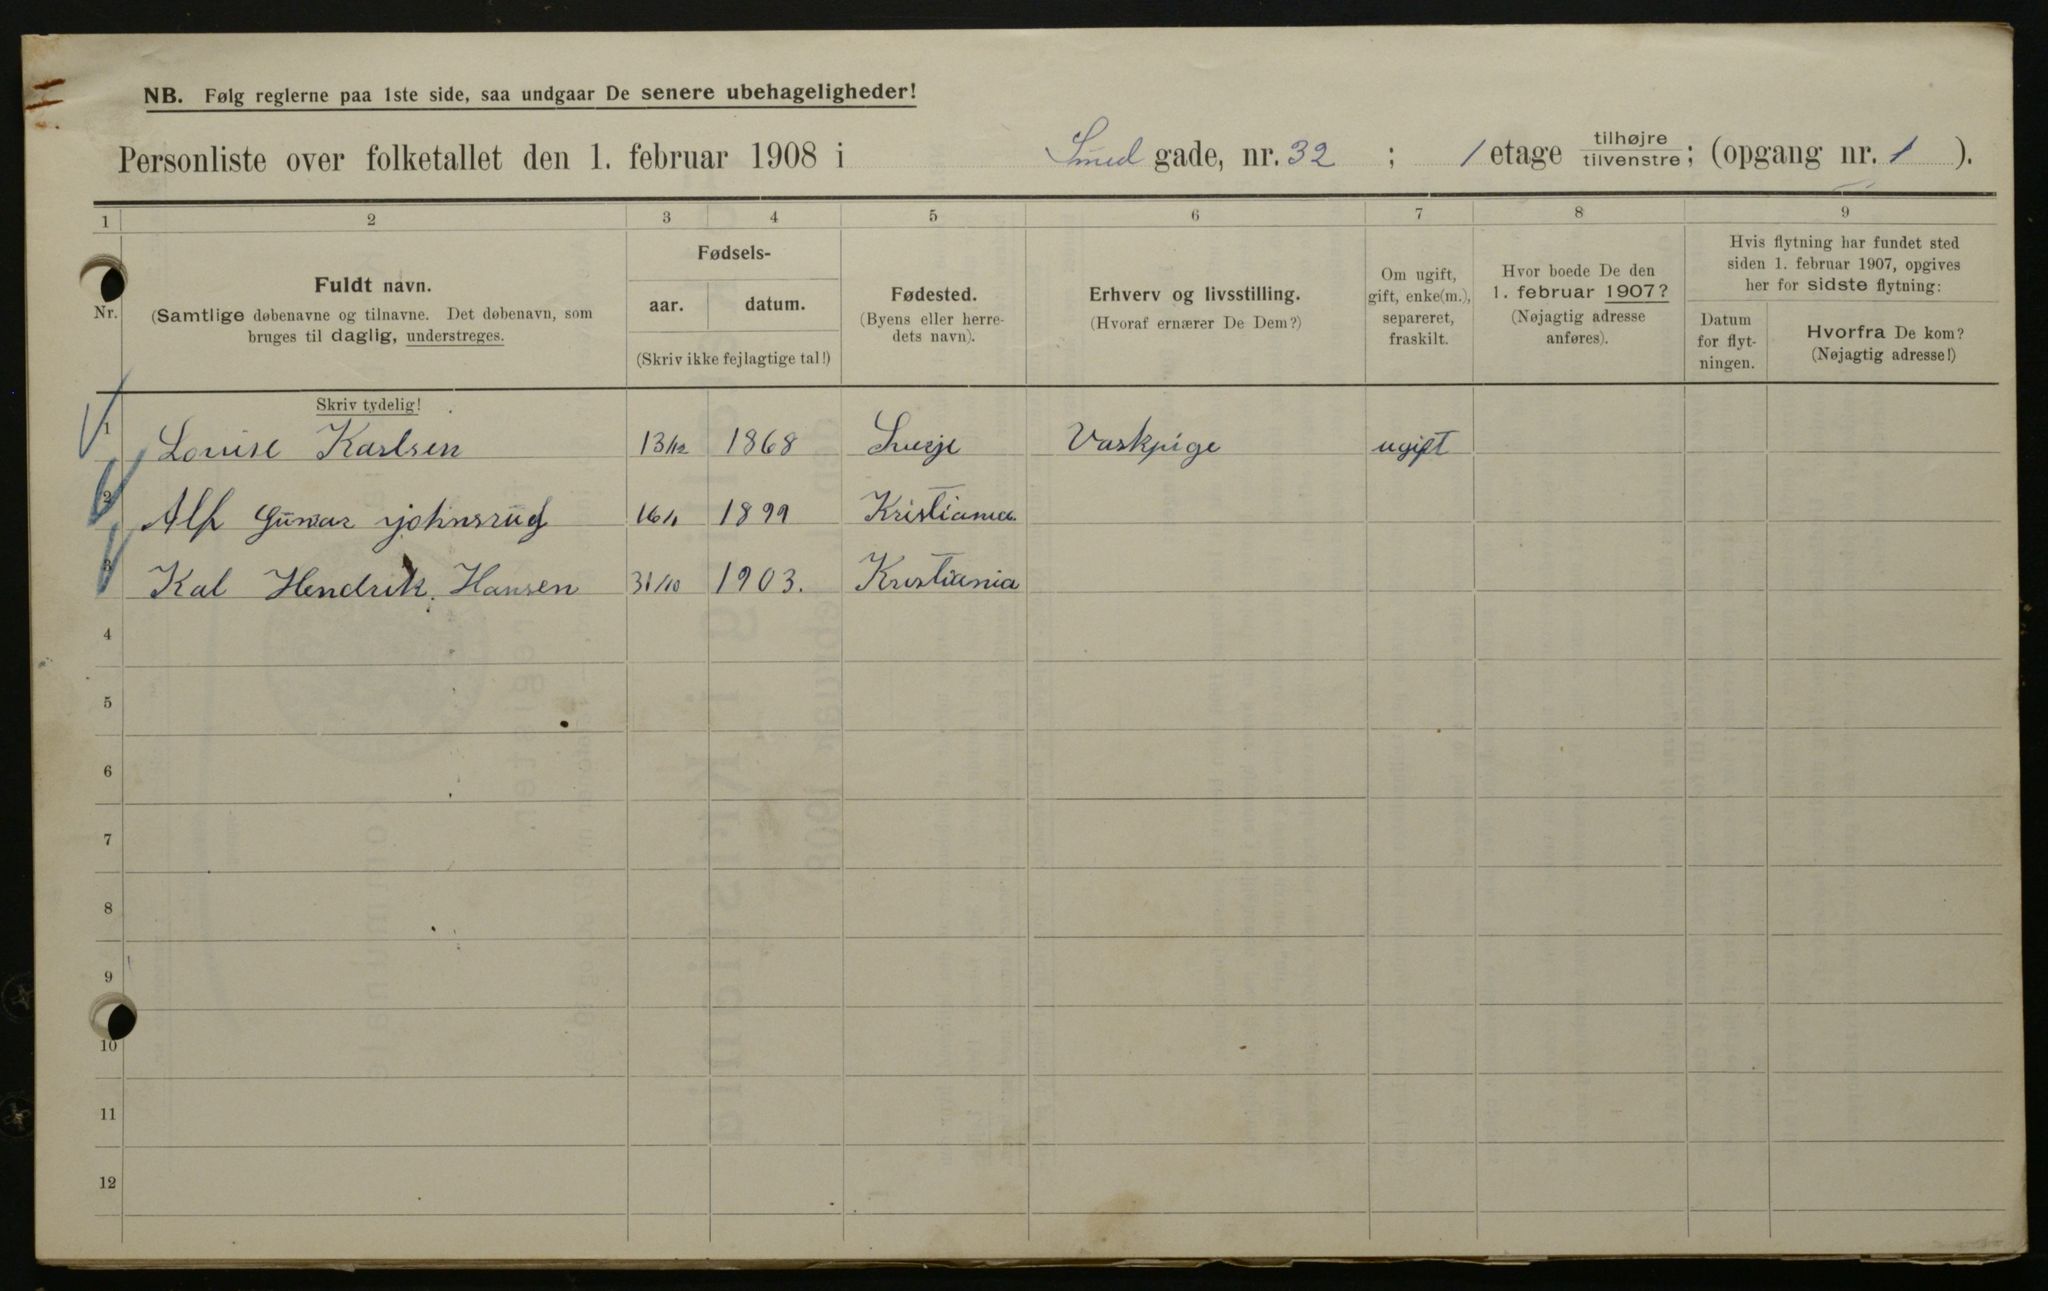 NB. Følg reglerne paa 1ste side, saa undgaar De senere ubehageligheder!
Personliste over folketallet den 1. februar 1908 i Smed gade, nr. 32 ; 1 etage tilhøjre tilvenstre; (opgang nr. 1 ).
1 2 3 4 5 6 7 8 9
Nr.
Fuldt navn.
(Samtlige døbenavne og tilnavne. Det døbenavn, som
bruges til daglig, understreges.
Fødsels-
aar. datum.
(Skriv ikke fejlagtige tal!)
Fødested.
(Byens eller herre-
dets navn).
Erhverv og livsstilling.
(Hvoraf ernærer De Dem?)
Om ugift,
gift, enke(m.),
separeret,
fraskilt.
Hvor boede De den
1. februar 1907?
(Nøjagtig adresse
anføres).
Hvis flytning har fundet sted
siden 1. februar 1907, opgives
her for sidste flytning:
Datum
for flyt-
ningen.
Hvorfra De kom?
(Nøjagtig adresse!)
Skriv tydelig!
1 Louise Karlsen 13/12 1868 Sverje Vaskpige ugift
2 Alf Gunnar Johnsrud 16/1 1899 Kristiania
3 Kal Hendrik Hansen 31/10 1903. Kristiania
4
5
6
7
8
9
10
11
12